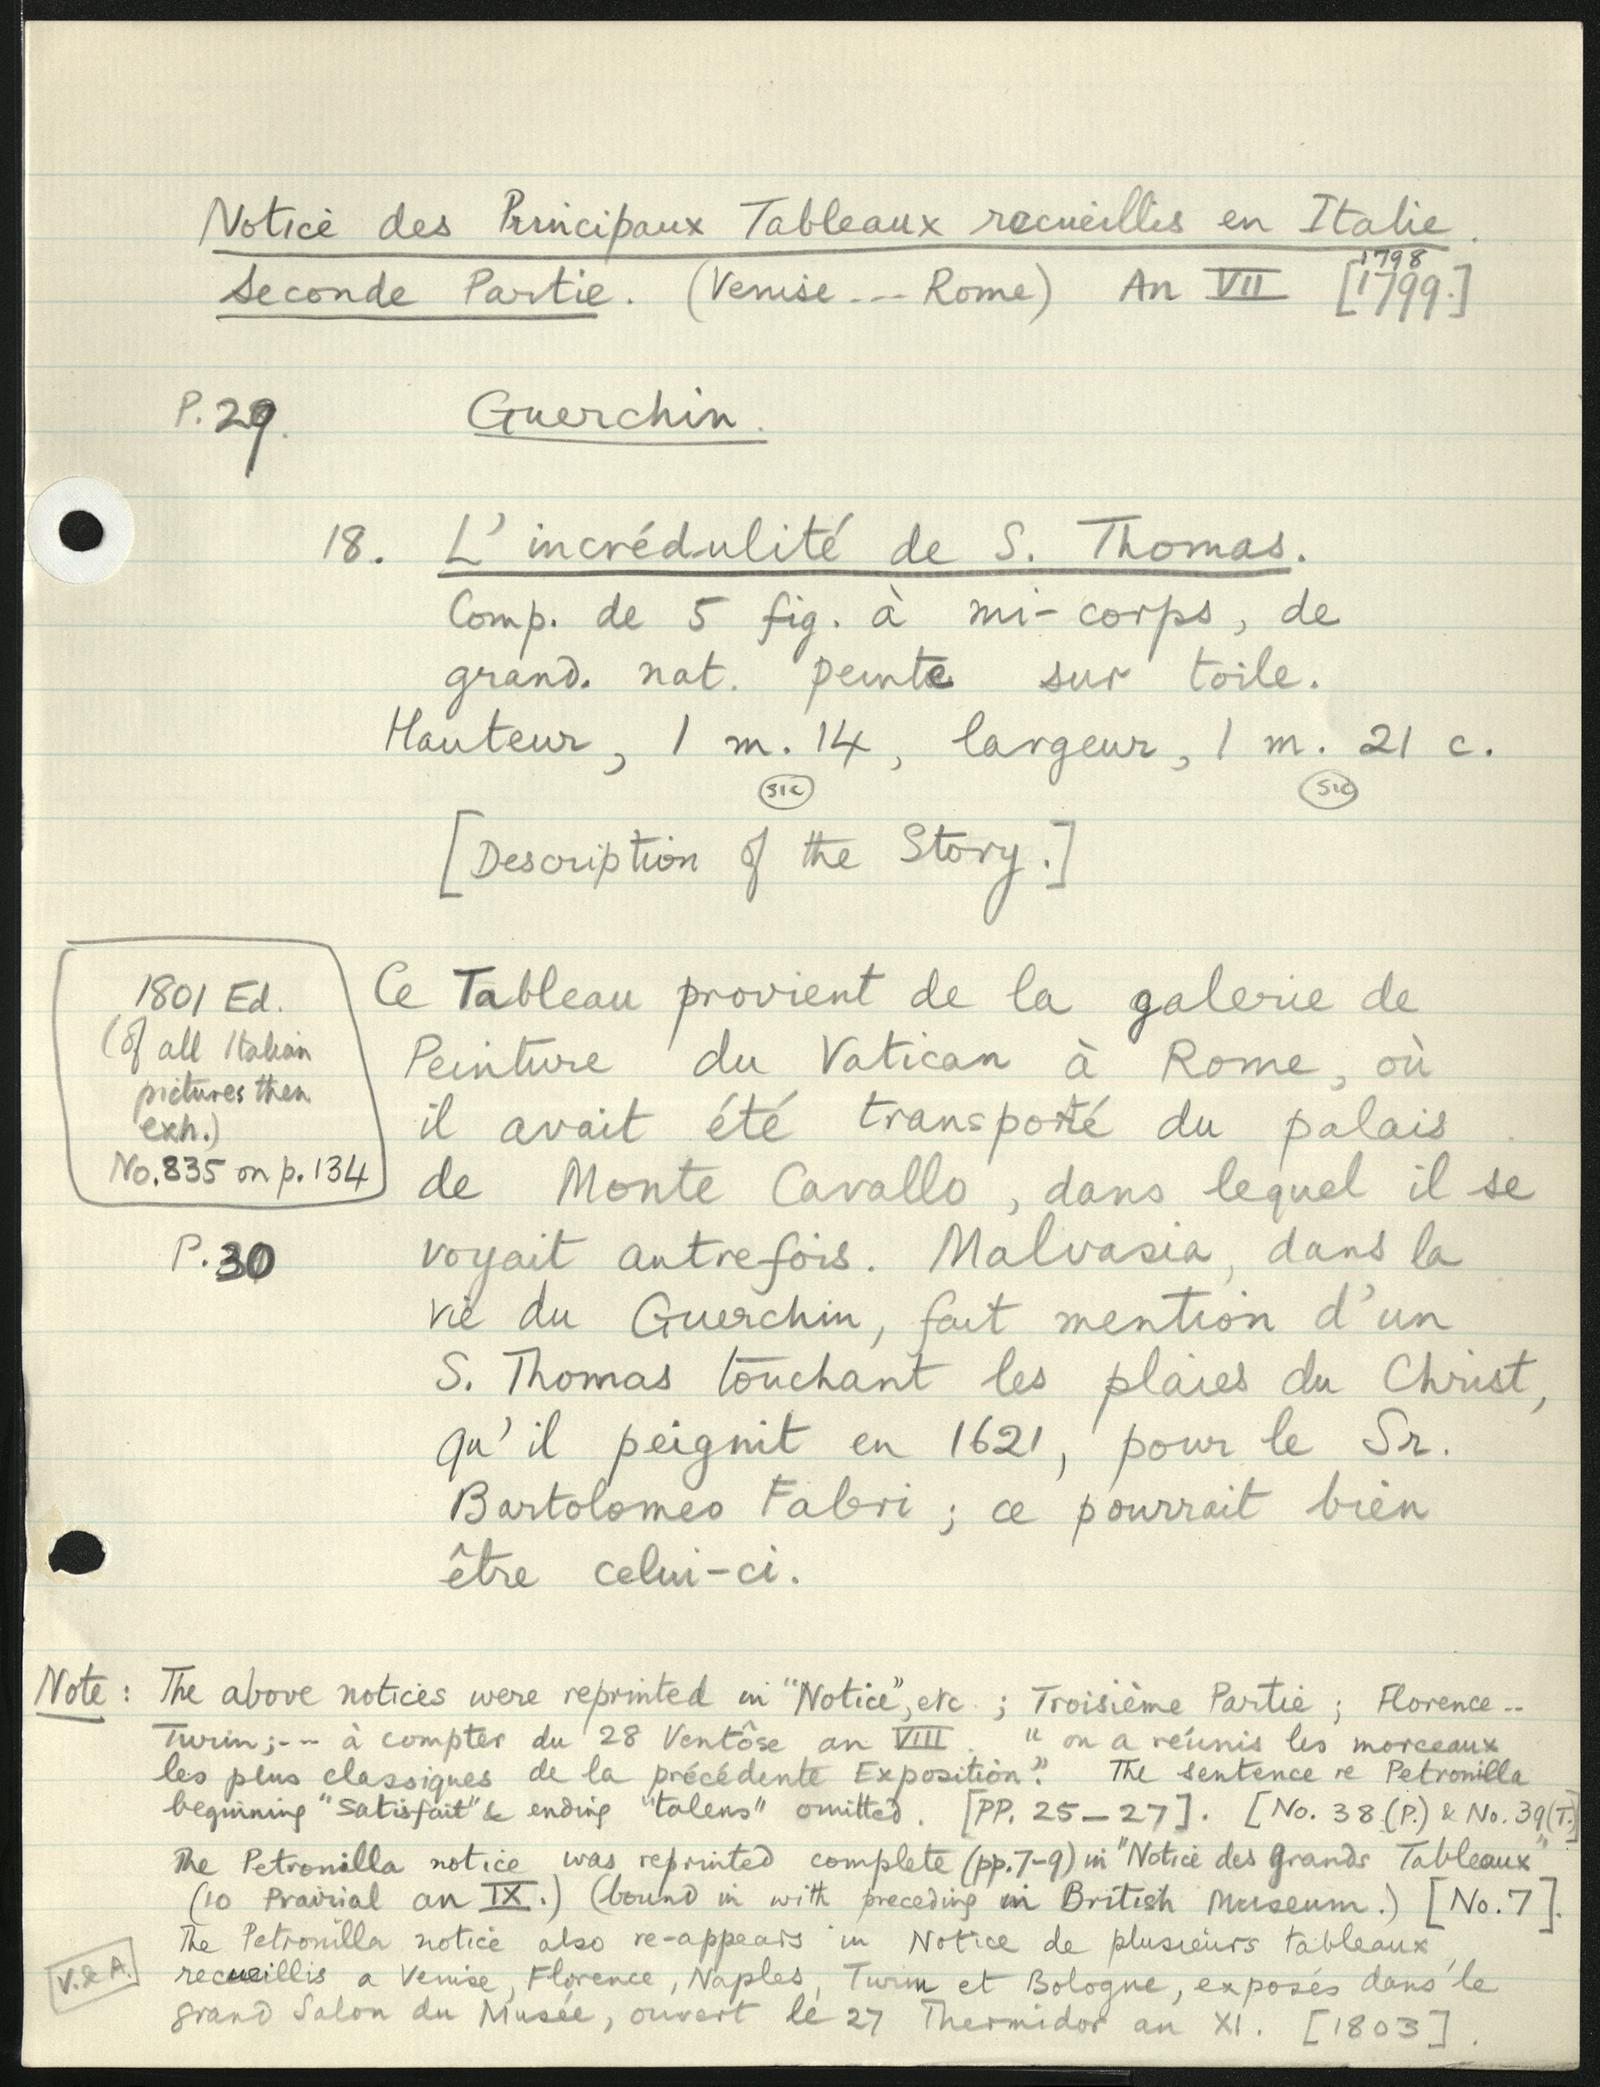 Notice des Principaux Tableaux recueillis en Italie.
Seconde Partie. (Venise --- Rome) An VII [1799.]
1798
P. 29. Guerchin.
18. L'incrédulité de S. Thomas.
Comp. de 5 fig. à mi-corps, de
grand. nat. peinte sur toile.
Hauteur, 1 m. 14, largeur, 1 m. 21 c.
sic sic
[Description of the Story.]
1801 Ed.
(of all Italian
pictures then
exh.)
No. 835 on p. 134
Ce Tableau provient de la galerie de
Peinture du Vatican à Rome, où
il avait été transporté du palais
de Monte Cavallo, dans lequel il se
P. 30 voyait autrefois. Malvasia, dans la
vie du Guerchin, fait mention d'un
S. Thomas touchant les plaies du Christ,
qu'il peignit en 1621, pour le Sr.
Bartolomeo Fabri; ce pourrait bien
être celui-ci.
Note: The above notices were reprinted in "Notice", etc.; Troisième Partie; Florence --
Turin; --- à compter du 28 Ventôse an VIII. "on a réunis les morceaux
les plus classiques de la précédente Exposition". The sentence re Petronilla
beginning "Satisfait" & ending "talens" omitted. [PP. 25-27]. [No. 38 (P.) & No. 39 (T.)]
The Petronilla notice was reprinted complete (pp. 7-9) in "Notice des Grands Tableaux"
(10 Prairial an IX.) (bound in with preceding in British Museum.) [No. 7].
The Petronilla notice also re-appears in Notice de plusieurs tableaux
V. & A. recueillis a Venise, Florence, Naples, Turin et Bologne, exposés dans le
grand Salon du Musée, ouvert le 27 Thermidor an XI. [1803].